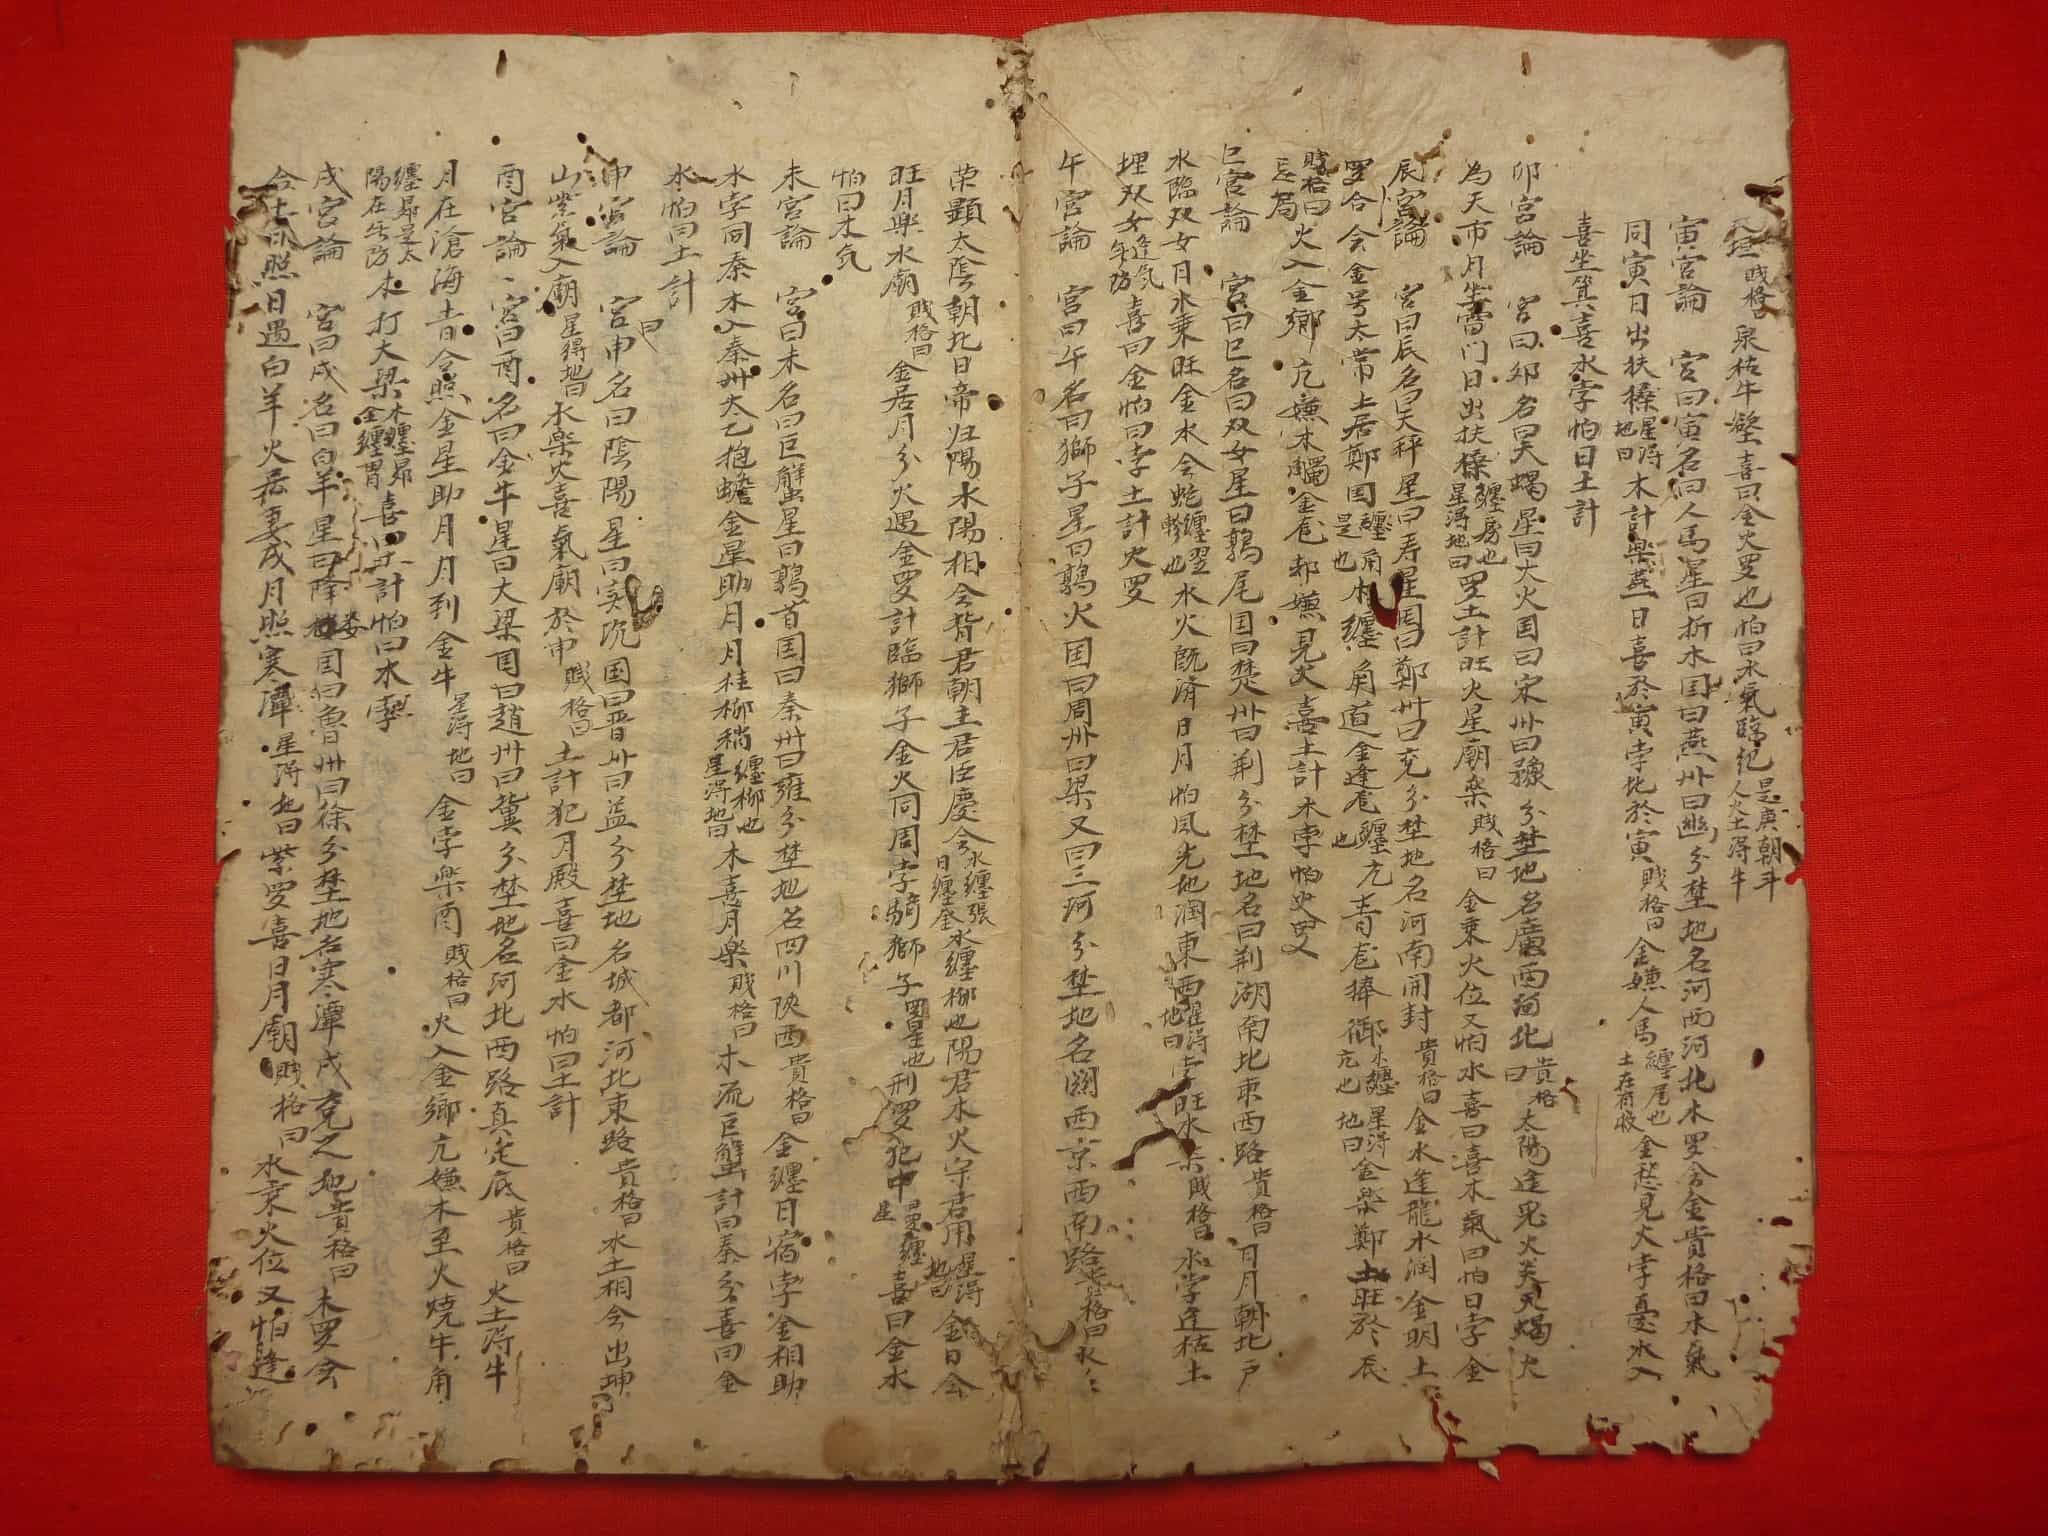 天垣賤格 泉枯牛壁喜曰金火罗也怕曰水氣臨紀是庚朝斗人火土淂牛
寅宫論 宮曰寅名曰人馬星曰折木国曰燕卅曰幽分埜地名河西河北木罗合金貴格曰木氣
同寅日出扶桑星淂地曰木計楽燕日喜於寅孛比於寅賤格曰金嫌人馬纏尾也土在有收金愁見火孛憂水入
喜坐箕喜水孛怕日土計
卯宮論 宮曰卯名曰天蝎星曰大火国曰宋卅曰豫分埜地名廣西河北貴格曰太陽逢兎火关天蝎火
為天市月坐雷门日出扶桑纏房也星淂地曰罗土計旺火星廟楽賤格曰金乗火位又怕水喜曰喜木氣曰怕日孛金
辰宮論 宮曰辰名曰天秤星曰寿星国曰鄭卅曰兖分埜地名河南開封貴格曰金水逢龍水润金明土
罗合会金号太常上居鄭国纏角是也木纏角道金逢亢纏亢也 青龙捧御水纏亢也星淂地曰金楽鄭土旺於辰
賤格曰火入金鄉亢嫌木触金龙却嫌見火喜土計木孛怕火罗
忌局
巳宮論 宮曰巳名曰双女星曰鶉尾国曰楚卅曰荆分埜地名曰荆湖南北東西路貴格曰日月朝北户
水臨双女月水乗旺金水会蛇纏翌軫也水火既済日月怕风光地润東西星淂地曰孛旺水楽賤格曰水孛逢枯土
埋双女逢氖年防喜曰金怕曰孛土計火罗
午宮論 宮曰午名曰獅子星曰鶉火国曰周卅曰梁又曰三河分埜地名關西京西南路貴格曰水
荣顯太陰朝北日帝归陽水陽相会皆君朝主君臣慶会水纏張日纏星水纏柳也陽君木火守君用星淂地曰金日会
旺月楽水廟賤格曰金居月分火遇金罗計臨獅子金火同周孛騎獅子罡星也刑罗犯中星罗纏喜曰金水
怕曰木氖
未宮論 宮曰未名曰巨蟹星曰鶉首国曰秦卅曰雍分埜地名四川陕西貴格曰金纏日宿孛金相助
水孛同秦木入秦卅太乙抱蟾金星助月月桂柳稍纏柳也星淂地曰木喜月楽賤格曰木流巨蟹計曰秦分喜曰金
水怕曰土計
申宮論 宮曰申名曰陰陽星曰实沉国曰晋卅曰益分埜地名城都河北東路貴格曰水土相会出坤
山紫氣入廟星得地曰水楽火喜氣廟於申賤格曰土計犯月殿喜曰金水怕曰土計
酉宮論 宮曰酉名曰金牛星曰大梁国曰趙卅曰冀分埜地名河北西路真定底貴格曰火土淂牛
月在滄海青会照金星助月月到金牛星淂地曰金孛楽酉賤格曰火入金鄉亢嫌木至火燒牛角
纏昴是太陽在坐防木打大梁木纏昴金纏胃喜曰土計怕曰水孛
戌宮論 宮曰戌名曰白羊星曰降婁国曰魯卅曰徐分埜地名寒潭戌兖之地貴格曰木罗会
合土日照日遇白羊火居婁戌月照寒潭星淂地曰紫罗喜日月廟賤格曰水乗火位又怕逢